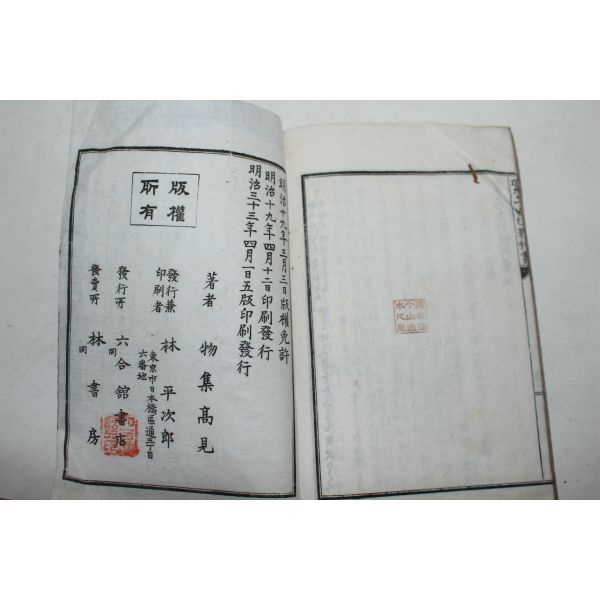 明治十九年三月三日版權免許
明治十九年四月十二日印刷發行
明治三十三年四月一日五版印刷發行
版權所有
著者 物集高見
發行兼印刷者 林平次郎
東京市日本橋區通三丁目六番地
發行所 同 六合舘書店
發賣所 同 林書房